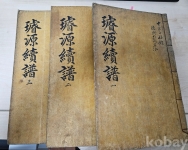 璿源續譜 一
璿源續譜 二
璿源續譜 三
kobay